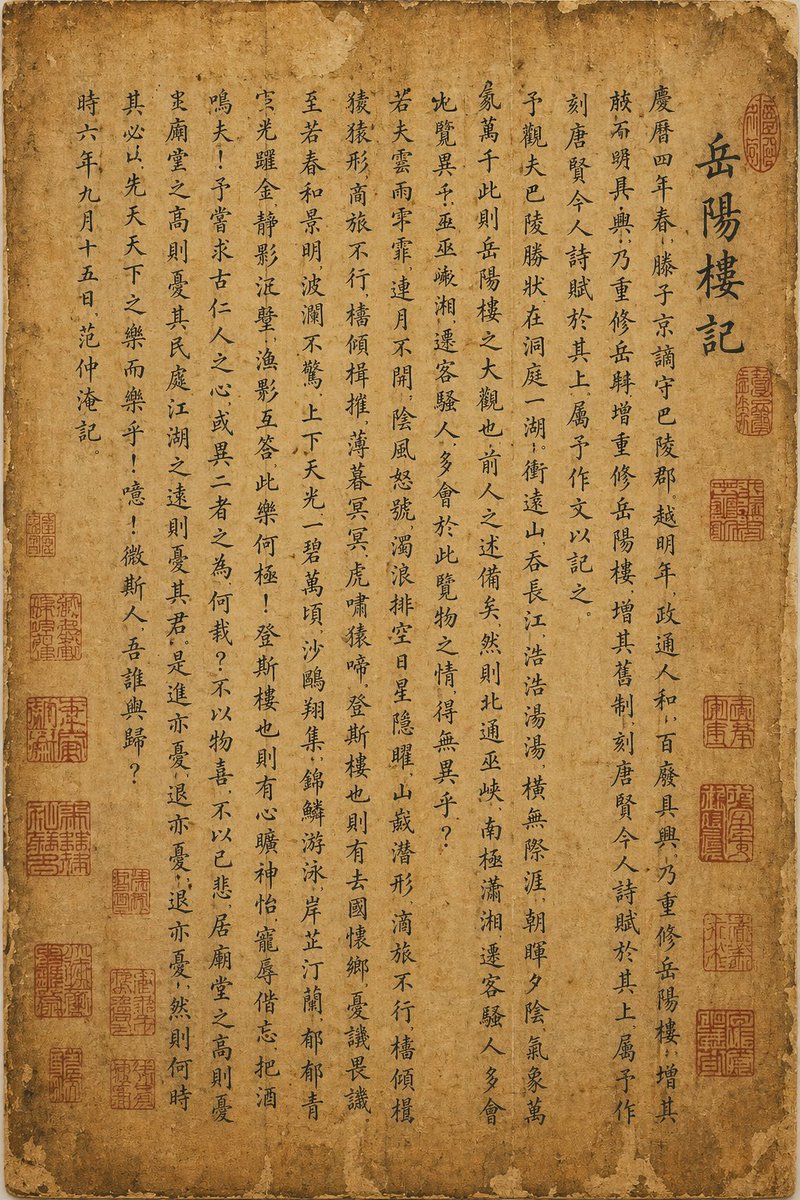 岳陽樓記
慶曆四年春，滕子京謫守巴陵郡。越明年，政通人和，百廢具興，乃重修岳陽樓，增其
明具興，乃重修岳 增重修岳陽樓，增其舊制，刻唐賢今人詩賦於其上，屬予作
刻唐賢今人詩賦於其上，屬予作文以記之。
予觀夫巴陵勝狀在洞庭一湖。衝遠山，吞長江，浩浩湯湯，橫無際涯，朝暉夕陰，氣象萬
萬千此則岳陽樓之大觀也，前人之述備矣，然則北通巫峽，南極瀟湘，遷客騷人多會
覽異 巫巫 湘，遷客騷人，多會於此覽物之情，得無異乎？
若夫雲雨 霏，連月不開，陰風怒號，濁浪排空日星隐曜，山 潛形，滴旅不行，檣傾
猿形，商旅不行，檣傾楫摧，薄暮冥冥，虎嘯猿啼，登斯樓也則有去國懷鄉，憂譏畏譏。
至若春和景明，波瀾不驚，上下天光，一碧萬頃，沙鷗翔集，錦鱗游泳，岸芷汀蘭，郁郁青
光躍金，靜影 ，漁影互答，此樂何極！登斯樓也則有心曠神怡，寵辱偕忘，把酒
鳴夫！予嘗求古仁人之心，或異二者之為，何哉？不以物喜，不以己悲，居廟堂之高則憂
廟堂之高則憂其民處江湖之遠則憂其君。是進亦憂，退亦憂，退亦憂，然則何時
其必 先天天下之樂而樂乎！噫！微斯人，吾誰與歸？
時六年九月十五日，范仲淹記。